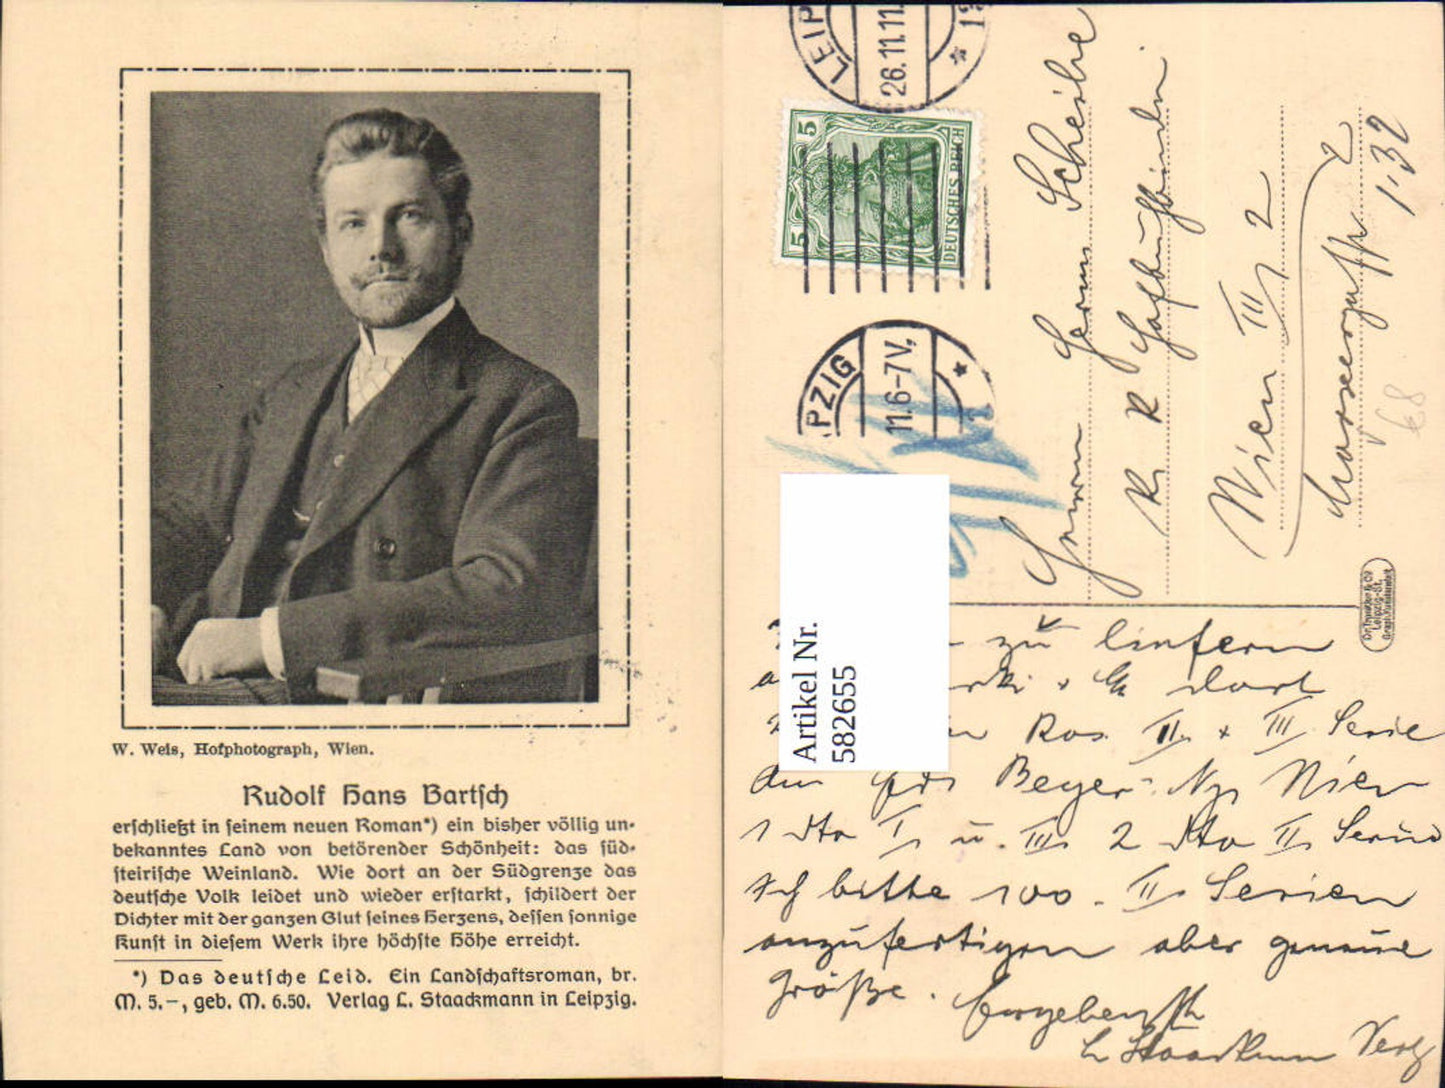 W. Weis, Hofphotograph, Wien.
Rudolf Hans Bartsch
erschließt in seinem neuen Roman*) ein bisher völlig un-
bekanntes Land von betörender Schönheit: das süd-
steirische Weinland. Wie dort an der Südgrenze das
deutsche Volk leidet und wieder erstarkt, schildert der
Dichter mit der ganzen Glut seines Herzens, dessen sonnige
Kunst in diesem Werk ihre höchste Höhe erreicht.
*) Das deutsche Leid. Ein Landschaftsroman, br.
M. 5.–, geb. M. 6.50. Verlag L. Staackmann in Leipzig.
LEIP
26.11.11.
5 5
DEUTSCHES REICH
PZIG
11.6-7V.
Herrn Herm Scheibe
K K Hofbuchbinder
Wien III 2
Marxergasse
1·32
€8
Artikel Nr.
582655
Dr. Trenkler & Co
Leipzig-St.
zu liefern
dort
Ros. II + III Serie
Beyer Wien
1 dto I u. III 2 dto II Serie
Ich bitte 100 II Serien
anzufertigen aber genaue
Größe. Ergebenst
L Staackmann Verlg